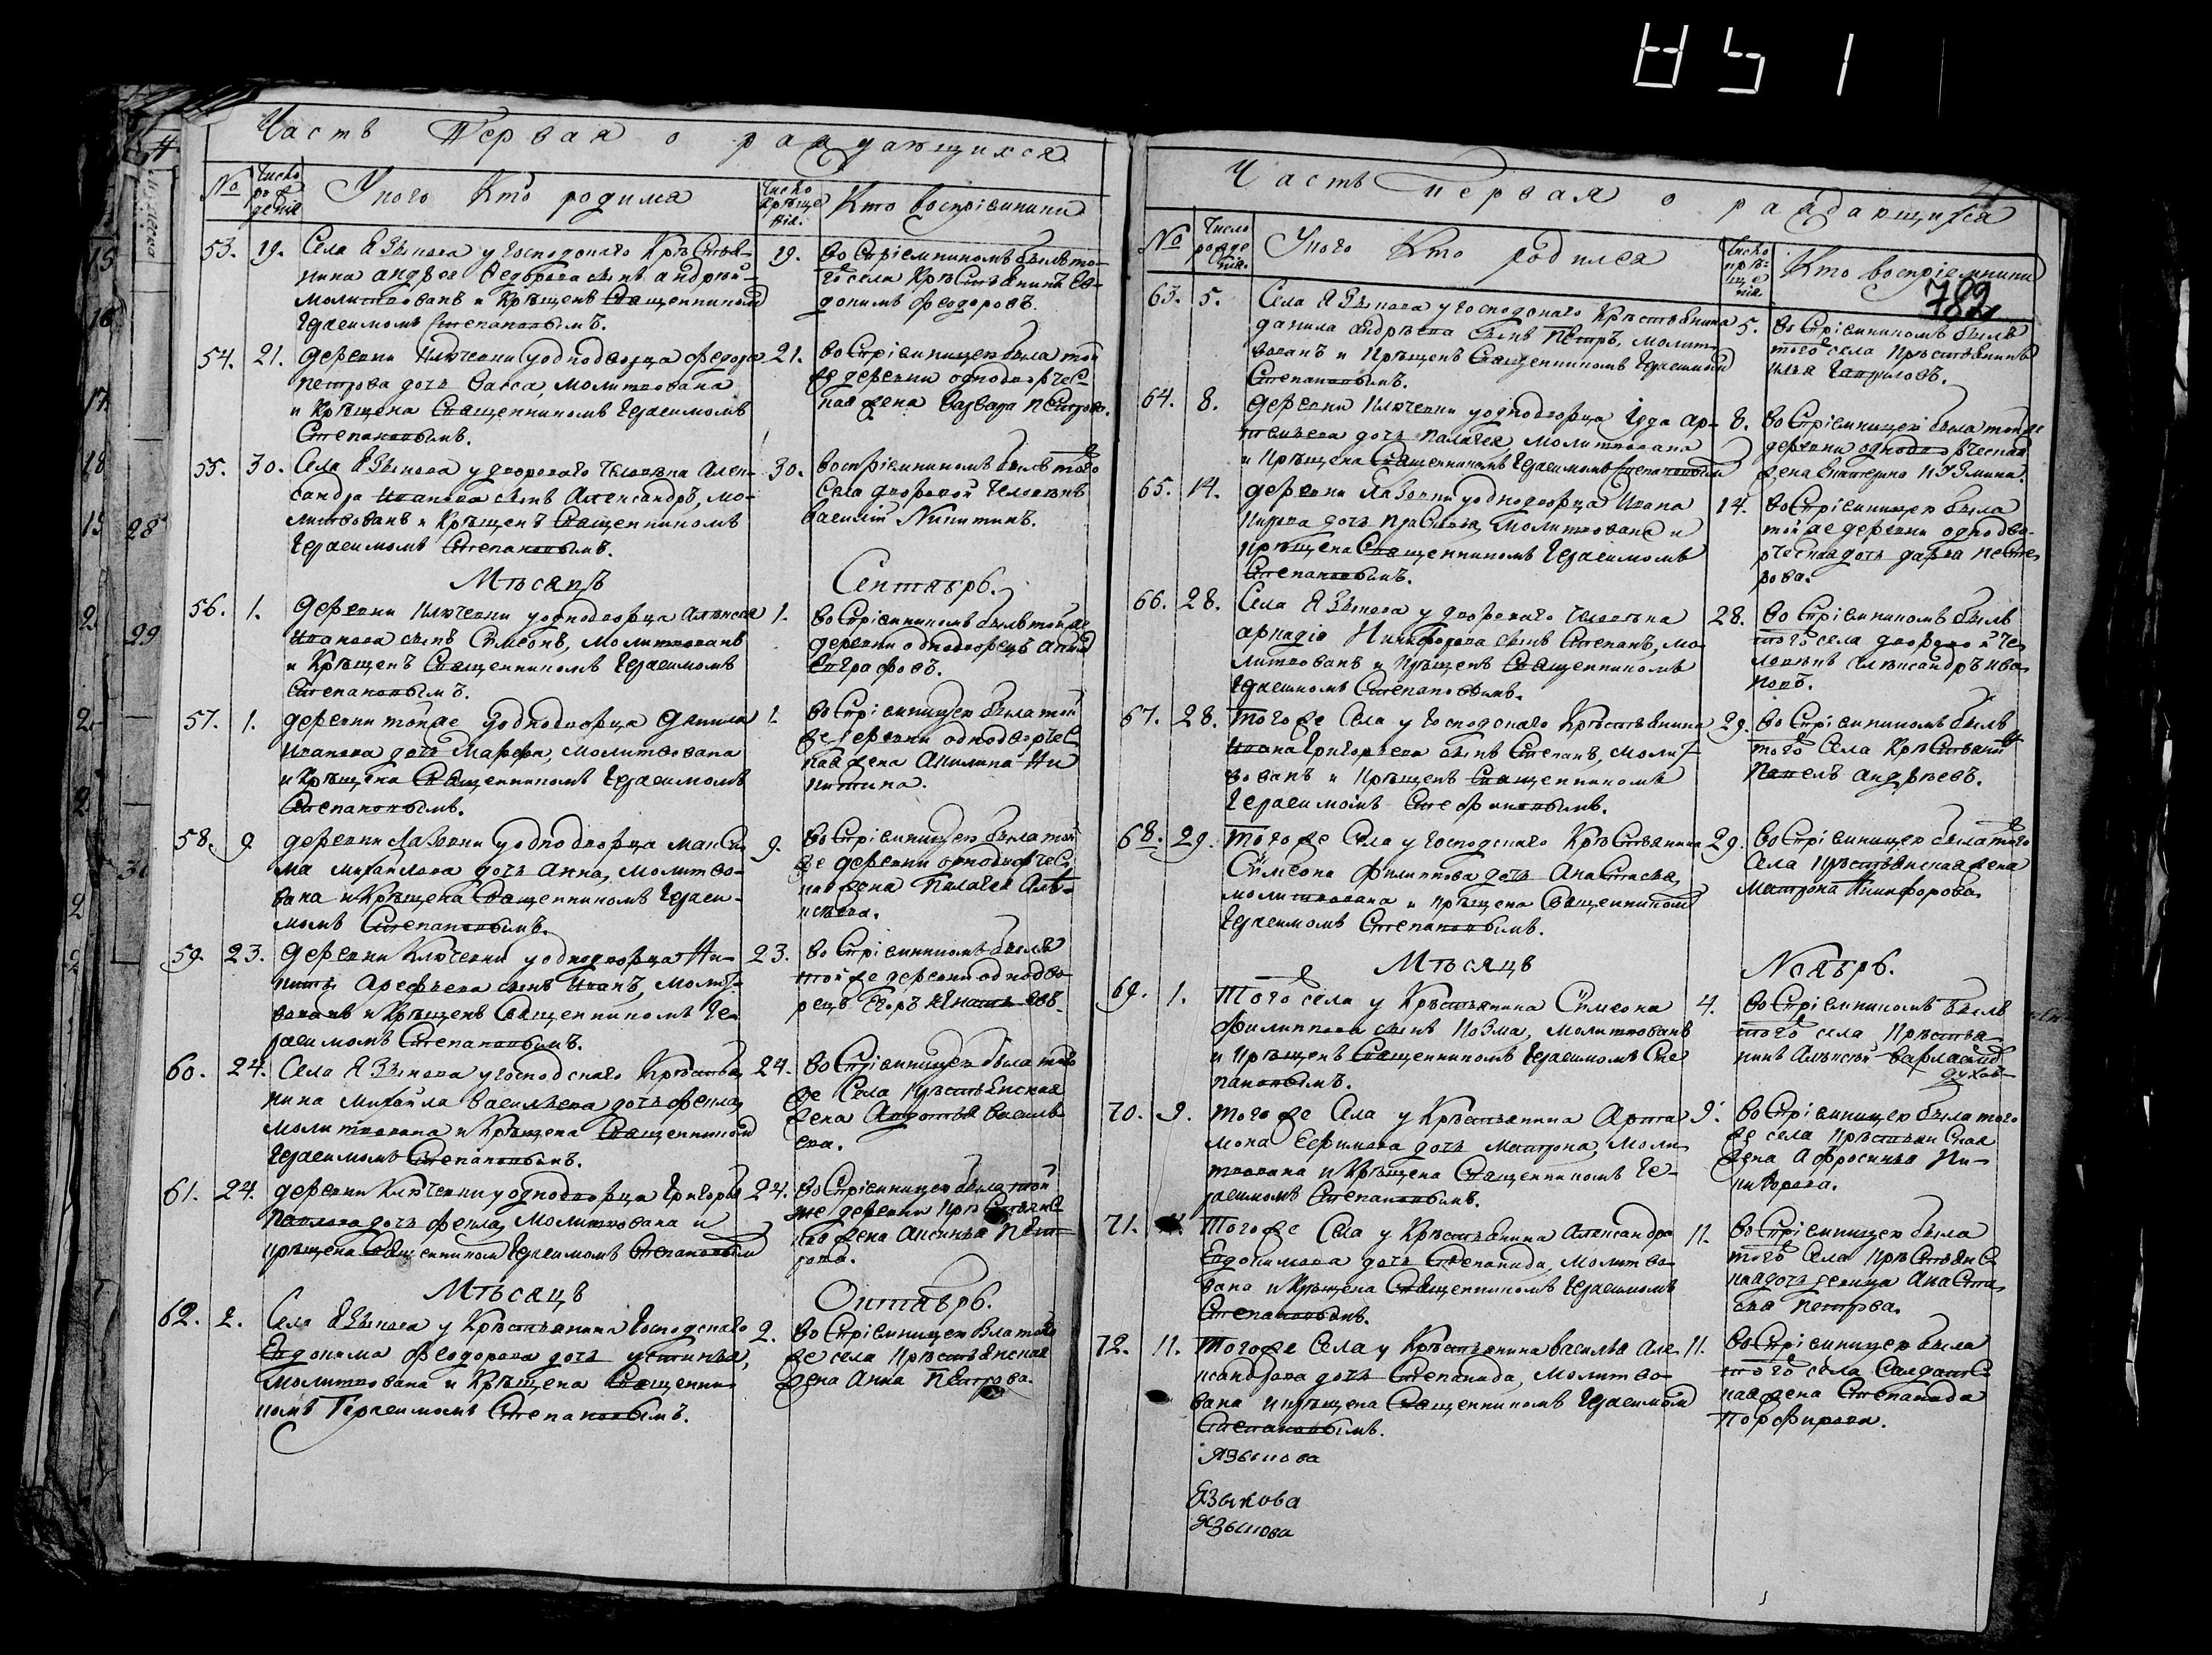 Часть Первая о раждающихся
№
Число рождения
У кого Кто родился
Число крещения
Кто восприемники
53. 19. Села Языкова у господскаго Крѣстья-
нина андрея Федорова сынъ андрей
молитвованъ и Крѣщенъ Священником
Герасимомъ Степановымъ.
19. воспріемникомъ былъ то-
го села Крѣстьянинъ Ев-
докимъ феодоровъ.
54. 21. деревни Ключевки у однодворца федора
петрова дочь Васса, молитвована
и Крѣщена Священникомъ Герасимомъ
Степановымъ.
21. воспріемницею была той
же деревни однодворчес-
кая жена варвара петрова.
55. 30. Села Языкова у двороваго человѣка Алек-
сандра Иванова сынъ Александръ, мо-
литвованъ и Крѣщенъ Священникомъ
Герасимомъ Степановымъ.
30. воспріемникомъ былъ того
Села дворовой Человѣкъ
василій Никитинъ.
Мѣсяцъ Сентябрь.
56. 1. деревни Ключевки у однодворца алексея
Иванова сынъ Сѵмеонъ, молитвованъ
и Крѣщенъ Священникомъ Герасимомъ
Степановымъ.
1. воспріемникомъ былъ той же
деревни однодворецъ
Евграфовъ.
57. 1. деревни тойже у однодворца данила
Иванова дочь Марфа, молитвована
и Крѣщена Священникомъ Герасимомъ
Степановымъ.
1. воспріемницею была той
же деревни однодворчес
кая жена Акилина Ни
китина.
58. 9 деревни Лазовки у однодворца макси
ма михайлова дочь анна, молитво-
вана и Крѣщена Священникомъ Гераси-
момъ Степановымъ.
9. воспріемницею была той
же деревни однодворчес
кая жена Палагея Але-
ксѣева.
59. 23. деревни Ключевки у однодворца Ни-
киты Арефьева сынъ Иванъ, молит-
вованъ и Крѣщенъ Священникомъ Ге-
расимомъ Степановымъ.
23. воспріемникомъ былъ
той же деревни одноdво-
рецъ Егоръ Игнатьевъ.
60. 24. Села Языкова у господскаго Крѣстья
нина михайла васильева дочь фекла,
молитвована и Крѣщена Священником
Герасимомъ Степановымъ.
24. воспріемницею была того
же Села Крѣстьянская
жена Авдотья василь-
ева.
61. 24. деревни Ключевки у однодворца Григорья
Павлова дочь фекла, Молитвована и
крѣщена Священником Герасимомъ Степановым
24. воспріемницею была той
же деревни Крѣстьянс
кая жена Аксинья Пет-
рова.
Мѣсяцъ Октябрь.
62. 2. Села Языкова у Крѣстьянина господскаго
Евдокима феодорова дочь устинья,
молитвована и Крѣщена Священни-
комъ Герасимомъ Степановымъ.
2. воспріемницею была того
же села Крѣстьянская
жена Анна Петрова.
Часть первая о раждающихся
№
Число рожде ния.
У кого Кто родился
Число крѣ-ще ния
Кто воспріемники
782
63. 5. Села Языкова у господскаго Крѣстьянина
данила андрѣева сынъ Петръ, молит-
вованъ и Крѣщенъ Священникомъ Герасимом
Степановымъ.
5. воспріемникомъ былъ
того села Крѣстьянинъ
илья Гавриловъ.
64. 8. деревни Ключевки у однодворца Гуда ар-
темьева дочь палагея молитвована
и Крѣщена Священникомъ Герасимомъ Степановым
8. воспріемницею была тойже
деревни однодворческая
жена Екатерина Кузмина.
65. 14. деревни Лазовки у однодворца Ивана
Кирева дочь прасковья, молитвована и
крѣщена Священникомъ Герасимомъ
Степановымъ.
14. воспріемницею была
тойже деревни однодво-
рческая дочь дарья несте
рова.
66. 28. Села Языкова у двороваго человѣка
аркадія Никифорова сынъ Степанъ, мо
литвованъ и Крѣщенъ Священникомъ
Герасимомъ Степановымъ.
28. воспріемникомъ былъ
того села дворовой че
ловѣкъ александръ ива
новъ.
67. 28. того же Села у господскаго Крѣстьянина
Ивана Григорьева сынъ Степанъ, молит-
вованъ и Крѣщенъ Священникомъ
Герасимомъ Стефановымъ.
29. воспріемникомъ былъ
того Села Крѣстьянин
Павелъ андрѣевъ.
68. 29. того же Села у господскаго Крѣстьянина
Сѵмеона филиппова дочь Анастасья,
молитвована и крѣщена Священником
Герасимомъ Степановымъ.
29. воспріемницею была того
Села Крѣстьянская жена
матрона Никифорова.
Мѣсяцъ Ноябрь.
69. 1. того села у Крѣстьянина Сѵмеона
филиппова сынъ Козма, молитвованъ
и Крѣщенъ Священникомъ Герасимомъ Сте
пановымъ.
4. воспріемникомъ былъ
того села Крѣстья-
нинъ Алексѣй
70. 9. того же Села у Крѣстьянина Арта
мона Ефимова дочь матрона, моли
твована и Крѣщена Священникомъ Ге-
расимомъ Степановымъ.
9. воспріемницею была того
же села Крѣстьянская
жена Афросинья Ни-
кифорова.
71. 11. того же Села у Крѣстьянина Александра
Евдокимова дочь Степанида, молитво-
вана и Крѣщена Священникомъ Герасимомъ
Степановымъ.
11. воспріемницею была
того Села Крѣстьянс
кая дочь девица Анаста
сья петрова.
72. 11. того же Села у Крѣстьянина василья Але
ксандрова дочь Степанида, молитво-
вана и крѣщена Священникомъ Герасимом
Степановымъ.
11. воспріемницею была
того села Салдатс
кая жена Степанида
Порфирова.
языкова
Языкова
языкова